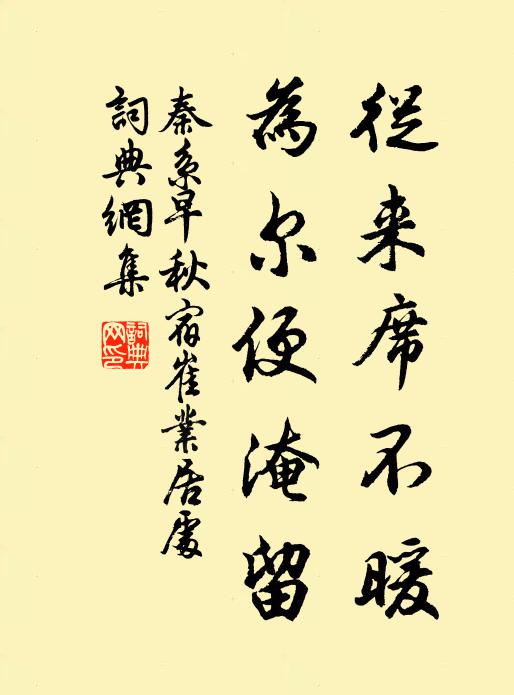 從来席不暖
為尔便淹留
秦系早秋宿崔業居處
詞典網集
詞典
网印